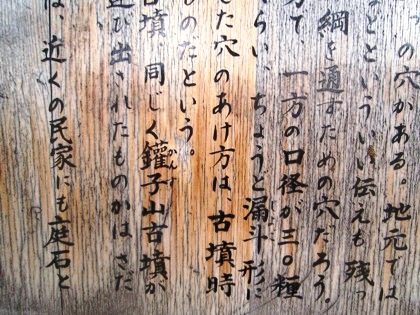 の穴がある。地元では
などといういい伝えも残っ
綱を通すための穴だろう。
方で、一方の口径が三〇糎
らい、ちょうど漏斗形に
した穴のあけ方は、古墳時
のだという。
古墳、同じく鑵子山古墳か
び出されたものかはさだ
は、近くの民家にも庭石と